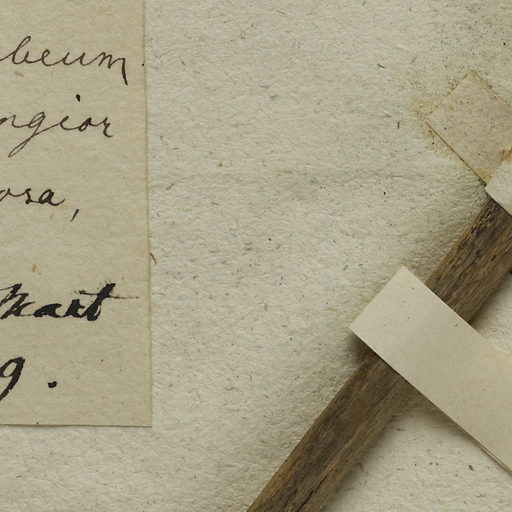 beum
ngior
osa,
Mart
9.